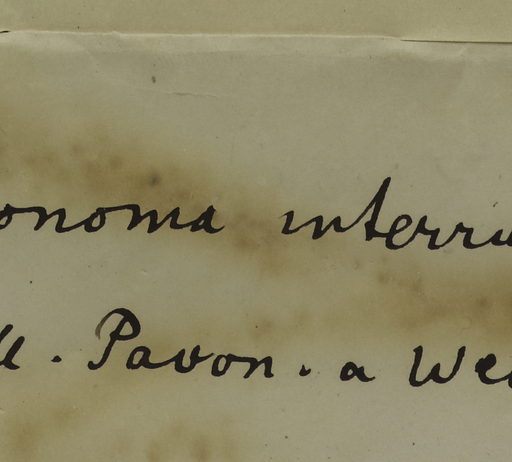 onoma interru
. Pavon . a We